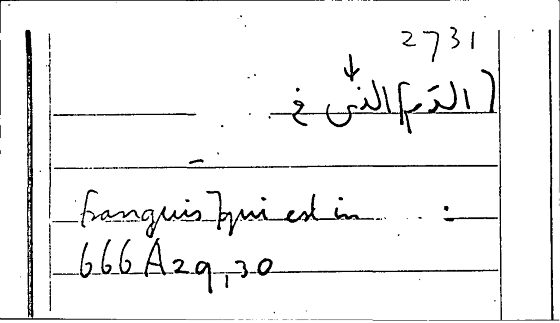 2731
↓
[الدّم] الذى فى
sanguis] qui est in :
666A29,30